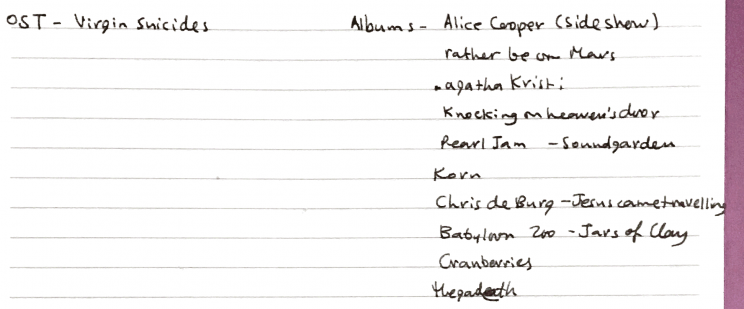 OST - Virgin Suicides Albums - Alice Cooper (Sideshow)
rather be on Mars
agatha Kristi
Knocking on heaven's door
Pearl Jam - Soundgarden
Korn
Chris de Burg - Jesus came travelling
Babylon Zoo - Jars of Clay
Cranberries
Megadeth